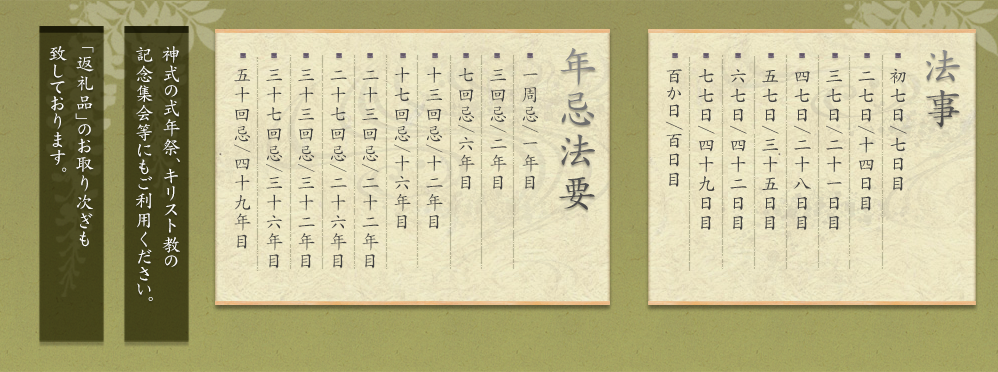 法事
初七日/七日目
二七日/十四日目
三七日/二十一日目
四七日/二十八日目
五七日/三十五日目
六七日/四十二日目
七七日/四十九日目
百か日/百日目
年忌法要
一周忌/一年目
三回忌/二年目
七回忌/六年目
十三回忌/十二年目
十七回忌/十六年目
二十三回忌/二十二年目
二十七回忌/二十六年目
三十三回忌/三十二年目
三十七回忌/三十六年目
五十回忌/四十九年目
神式の式年祭、キリスト教の
記念集会等にもご利用ください。
「返礼品」のお取り次ぎも
致しております。